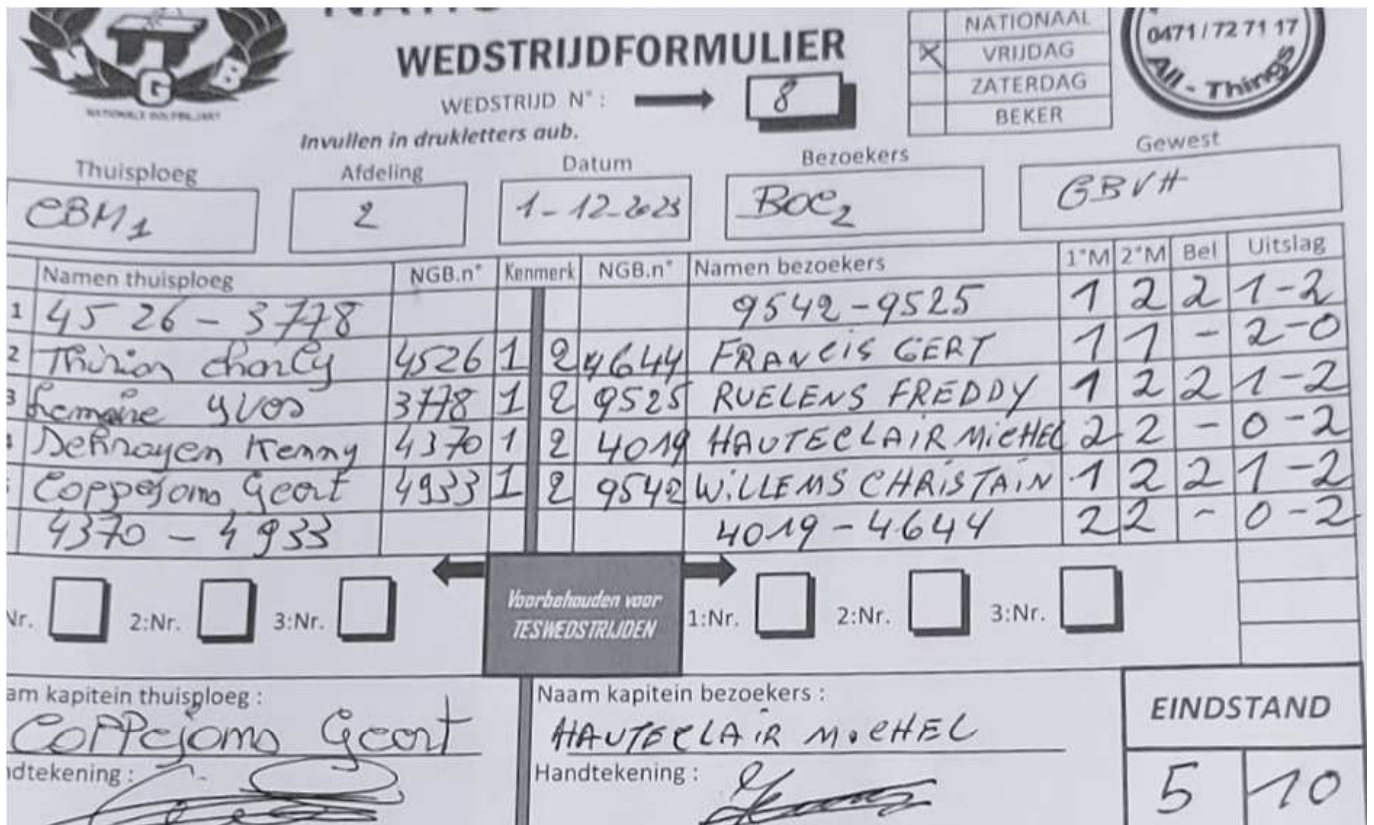 WEDSTRIJDFORMULIER
WEDSTRIJD N° : 8
Invullen in drukletters aub.
NATIONAAL
X VRIJDAG
ZATERDAG
BEKER
0471/72 71 17
All - Things
N G B
Thuisploeg Afdeling Datum Bezoekers Gewest
CBM1 2 1-12-2023 BOC2 GBVH
Namen thuisploeg NGB.n° Kenmerk NGB.n° Namen bezoekers 1°M 2°M Bel Uitslag
1 4526 - 3778 9542 - 9525 1 2 2 1-2
2 Thirion Charly 4526 1 2 4644 FRANCIS GERT 1 1 - 2-0
3 Lemaire Yvos 3778 1 2 9525 RUELENS FREDDY 1 2 2 1-2
Kenny 4370 1 2 4019 HAUTECLAIR MICHEL 2 2 - 0-2
Coppejoms Geert 4933 1 2 9542 WILLEMS CHRISTAIN 1 2 2 1-2
4370 - 4933 4019 - 4644 2 2 - 0-2
Nr. 2:Nr. 3:Nr. Voorbehouden voor 1:Nr. 2:Nr. 3:Nr.
TESWEDSTRIJDEN
am kapitein thuisploeg : Naam kapitein bezoekers : EINDSTAND
COPPejoms Geert HAUTECLAIR MICHEL
dtekening : Handtekening : 5 10